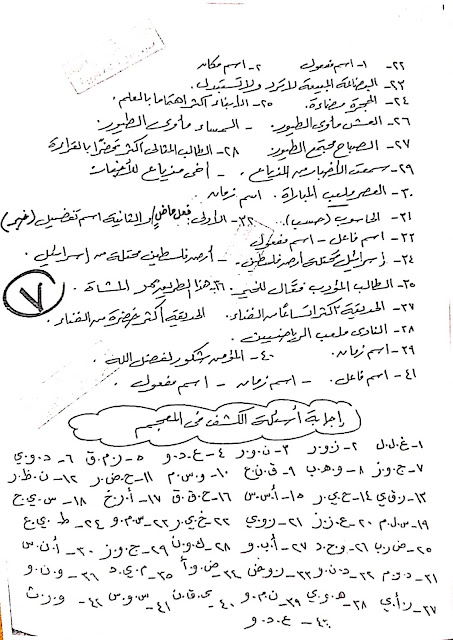 ٢٢- ١- اسم مفعول ٢- اسم مكان
٢٣- البضاعة المبيعة لا ترد ولا تستبدل.
٢٤- الحجرة مضاءة. ٢٥- الأبناء أكثر اهتماما بالعلم.
٢٦- العش مأوى الطيور. - المساء مأوى الطيور.
٢٧- الصباح مجتمع الطيور. ٢٨- الطالب المثالى أكثر تحضرا بالقراءة
٢٩- سمعت الأخبار من المذياع. - أخى مذياع للأغنيات
٣٠- العصر ملعب المباراة. اسم زمان.
٣١- الحاسوب (حسب). ٣٢- الأولى فعل ماضٍ والثانية اسم تفضيل (خير)
٣٣- اسم فاعل - اسم مفعول
٣٤- إسرائيل محتلة أرض فلسطين. - أرض فلسطين محتلة من إسرائيل.
٣٥- الطالب المؤدب فعال للخير. ٣٦- هذا الطريق ممر المشاة.
٧
٣٧- الحديقة أكثر اتساعا من الفناء. الحديقة أكثر خضرة من الفناء.
٣٨- النادى ملعب الرياضيين.
٣٩- اسم زمان. ٤٠- المؤمن شكور لفضل الله.
٤١- اسم فاعل. - اسم زمان - اسم مفعول.
إجابة أسئلة الكشف فى المعجم
١- غ.ل.ل ٢- ز.و.ر ٣- ن.و.ر ٤- ع.د.و ٥- ر.م.ق ٦- د.و.ي
٧- ج.و.ز ٨- و.هـ.ب ٩- ق.ن.ع ١٠- و.س.م ١١- ح.ض.ر ١٢- ن.ظ.ر
١٣- ر.ق.ي ١٤- ح.ي.ر ١٥- أ.س.س ١٦- ح.ق.ق ١٧- أ.ر.خ ١٨- س.ي.ح
١٩- س.ل.م ٢٠- ع.ز.ز ٢١- ر.و.ي ٢٢- خ.ي.ر ٢٣- س.م.و ٢٤- ط.ي.ع
٢٥- ض.ر.ب ٢٦- و.ح.د ٢٧- أ.ب.و ٢٨- ك.و.ن ٢٩- ج.و.ز ٣٠- أ.ن.س
٣١- د.و.م ٣٢- د.ن.و ٣٣- ر.و.ض ٣٤- ض.و.أ ٣٥- م.ي.د ٣٦- و.ن.و
٣٧- ر.أ.ي ٣٨- هـ.و.ي ٣٩- ن.م.و ٤٠- ٤١- س.و.س ٤٢- و.ر.ث
٤٣- ع.د.و